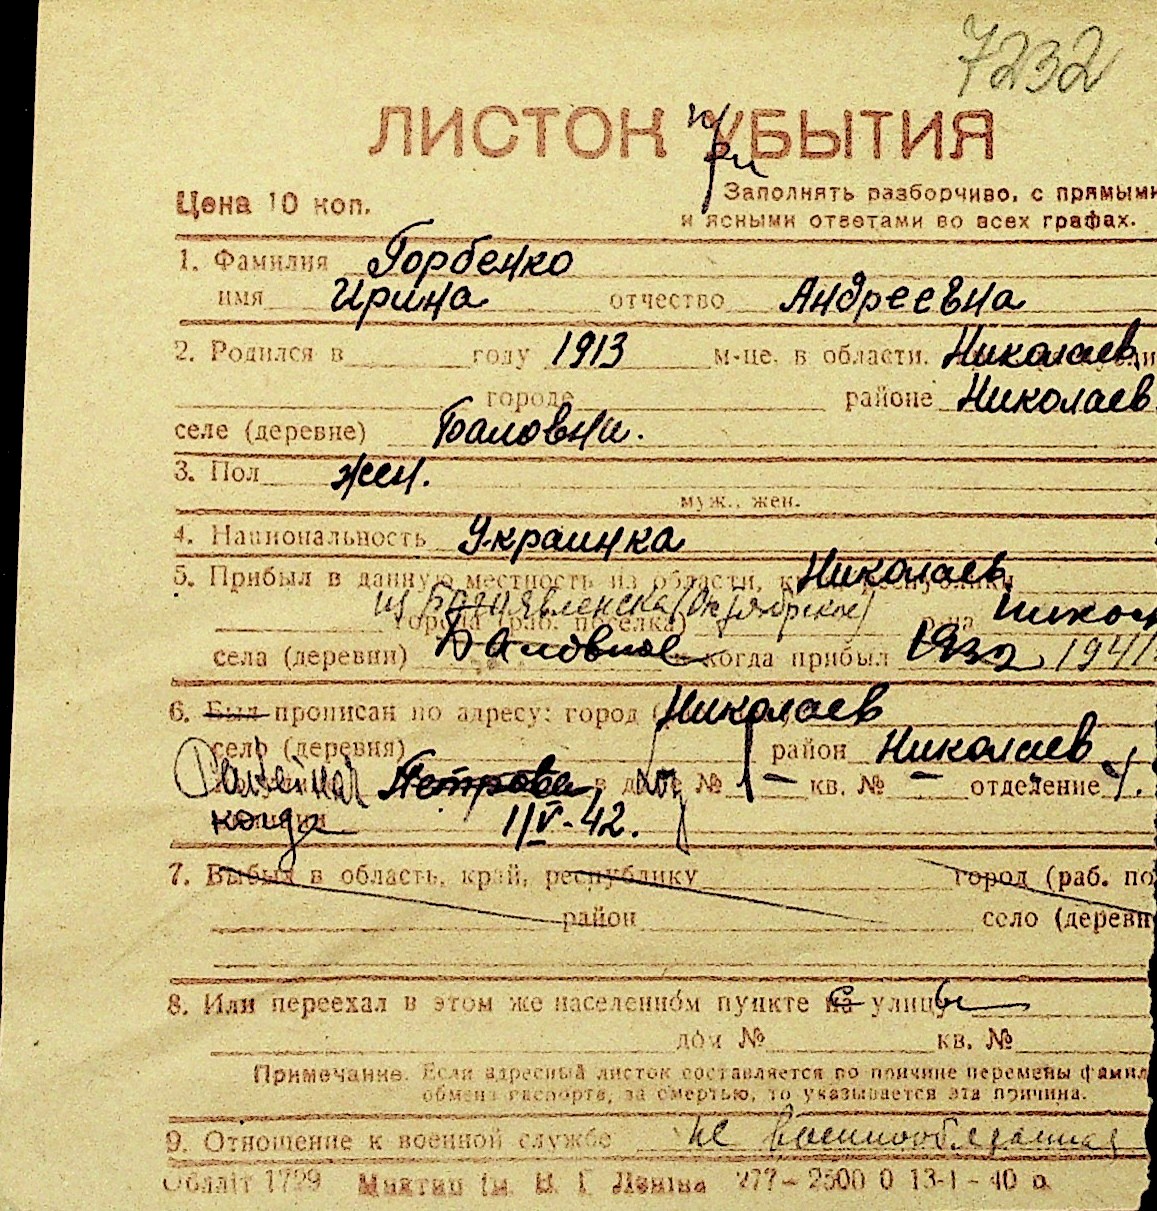 7232
ЛИСТОК при УБЫТИЯ
Цена 10 коп.
Заполнять разборчиво, с прямыми
и ясными ответами во всех графах.
1. Фамилия Горбенко
имя Ирина отчество Андреевна
2. Родился в году 1913 м-це, в области, Николаев
городе районе Николаев
селе (деревне) Баловни.
3. Пол жен.
муж., жен.
4. Национальность Украинка
5. Прибыл в данную местность из области, края, республики Николаев
из Богоявленска (Октябрьское)
города (раб. поселка) р-на
села (деревни) Баловное когда прибыл 1932 1941
6. Был прописан по адресу: город Николаев
село (деревня) район Николаев
Петрова, в доме № кв. № — отделение
когда 1/V-42.
7. Выбыл в область, край, республику город (раб. по
район село (деревн
8. Или переехал в этом же населенном пункте на с улицу ы
дом № кв. №
Примечание. Если адресный листок составляется по причине перемены фамил
обмена паспорта, за смертью, то указывается эта причина.
9. Отношение к военной службе не военнообязанная
Обллiт 1729 Миктип iм. В. I. Ленiна 277–2500 0 13-1-40 р.